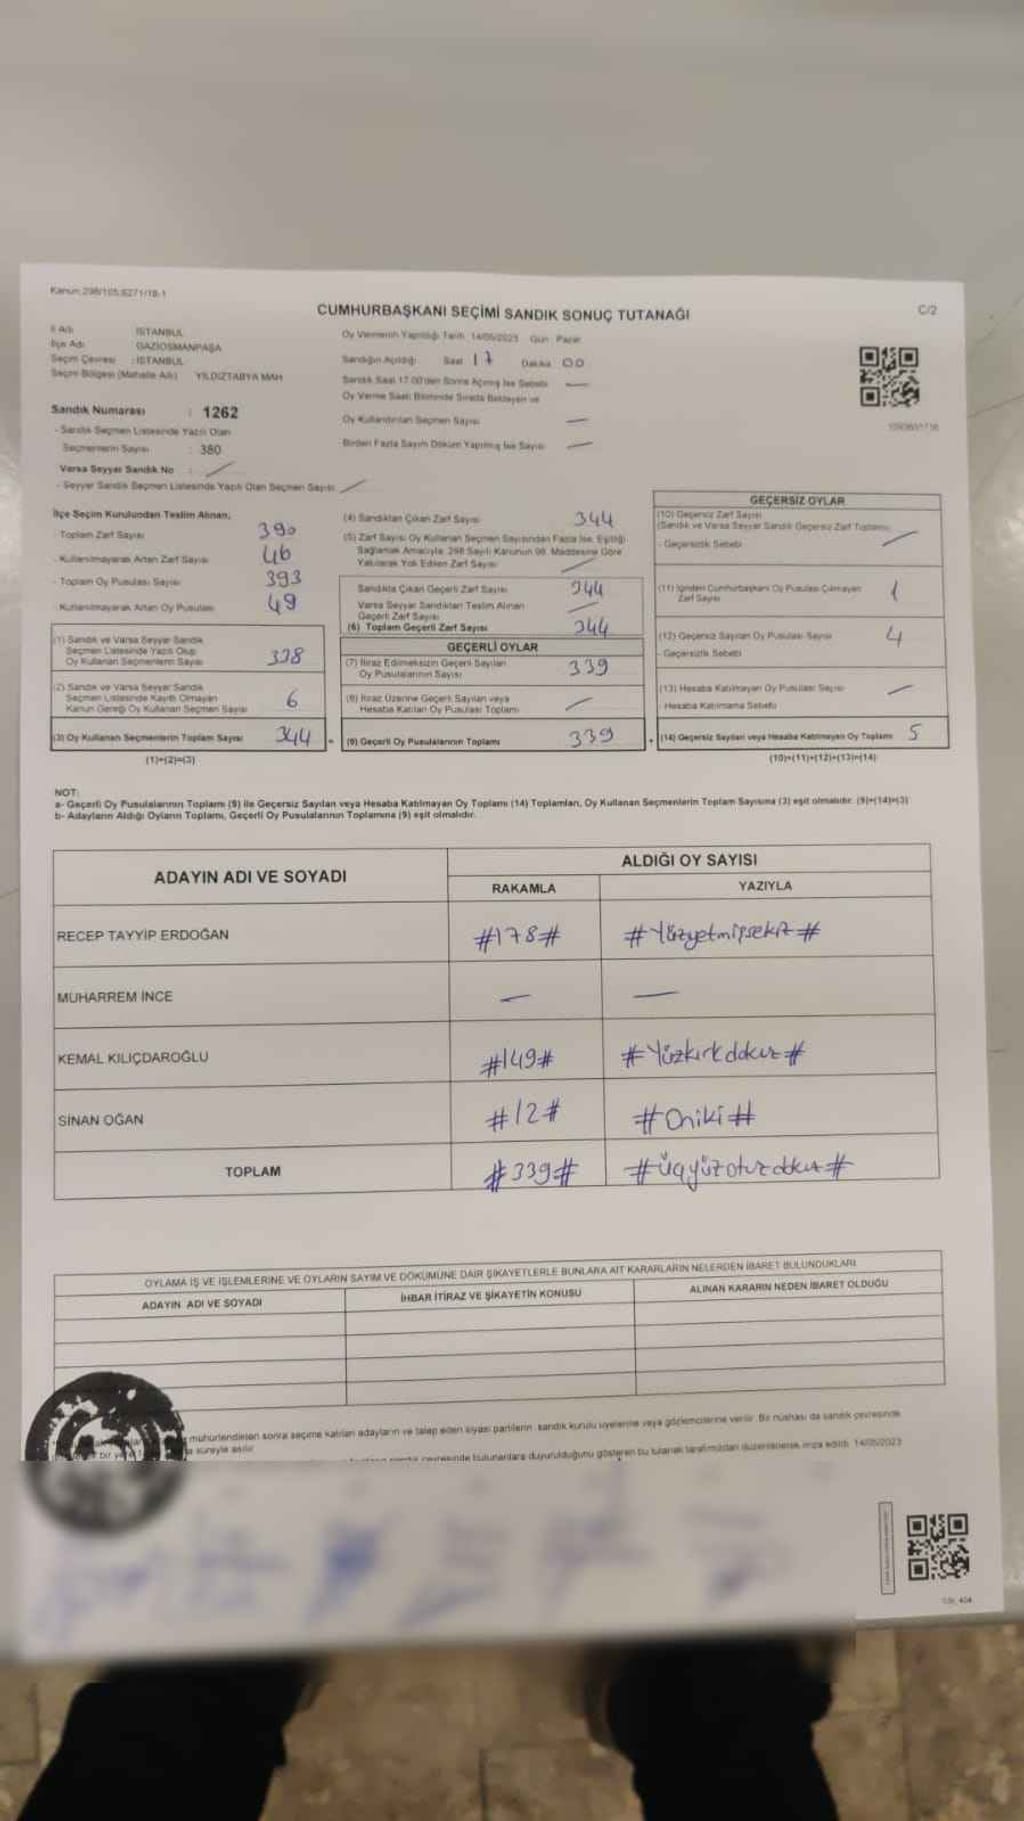 Kanun:298/105,6271/18-1
CUMHURBAŞKANI SEÇİMİ SANDIK SONUÇ TUTANAĞI
C/2
İl Adı İSTANBUL
İlçe Adı GAZİOSMANPAŞA
Seçim Çevresi : İSTANBUL
Seçim Bölgesi (Mahalle Adı) YILDIZTABYA MAH
Oy Vermenin Yapıldığı Tarih 14/05/2023 Gün Pazar
Sandığın Açıldığı Saat 17 Dakika 00
Sandık Saat 17.00'den Sonra Açılmış İse Sebebi —
Oy Verme Saati Bitiminde Sırada Bekleyen ve
Oy Kullandırılan Seçmen Sayısı —
Birden Fazla Sayım Döküm Yapılmış İse Sayısı —
Sandık Numarası : 1262
- Sandık Seçmen Listesinde Yazılı Olan
Seçmenlerin Sayısı : 380
Varsa Seyyar Sandık No :
- Seyyar Sandık Seçmen Listesinde Yazılı Olan Seçmen Sayısı
İlçe Seçim Kurulundan Teslim Alınan;
- Toplam Zarf Sayısı 390
- Kullanılmayarak Artan Zarf Sayısı 46
- Toplam Oy Pusulası Sayısı 393
- Kullanılmayarak Artan Oy Pusulası 49
(1) Sandık ve Varsa Seyyar Sandık
Seçmen Listesinde Yazılı Olup
Oy Kullanan Seçmenlerin Sayısı 338
(2) Sandık ve Varsa Seyyar Sandık
Seçmen Listesinde Kayıtlı Olmayan
Kanun Gereği Oy Kullanan Seçmen Sayısı 6
(3) Oy Kullanan Seçmenlerin Toplam Sayısı 344
(1)+(2)=(3)
(4) Sandıktan Çıkan Zarf Sayısı 344
(5) Zarf Sayısı Oy Kullanan Seçmen Sayısından Fazla İse, Eşitliği
Sağlamak Amacıyla, 298 Sayılı Kanunun 98. Maddesine Göre
Yakılarak Yok Edilen Zarf Sayısı
Sandıkta Çıkan Geçerli Zarf Sayısı 344
Varsa Seyyar Sandıktan Teslim Alınan
Geçerli Zarf Sayısı
(6) Toplam Geçerli Zarf Sayısı 344
GEÇERLİ OYLAR
(7) İtiraz Edilmeksizin Geçerli Sayılan
Oy Pusulalarının Sayısı 339
(8) İtiraz Üzerine Geçerli Sayılan veya
Hesaba Katılan Oy Pusulası Toplamı
(9) Geçerli Oy Pusulalarının Toplamı 339
GEÇERSİZ OYLAR
(10) Geçersiz Zarf Sayısı
(Sandık ve Varsa Seyyar Sandık Geçersiz Zarf Toplamı)
- Geçersizlik Sebebi
(11) İçinden Cumhurbaşkanı Oy Pusulası Çıkmayan
Zarf Sayısı 1
(12) Geçersiz Sayılan Oy Pusulası Sayısı 4
- Geçersizlik Sebebi
(13) Hesaba Katılmayan Oy Pusulası Sayısı —
- Hesaba Katılmama Sebebi
(14) Geçersiz Sayılan veya Hesaba Katılmayan Oy Toplamı 5
(10)+(11)+(12)+(13)=(14)
NOT:
a- Geçerli Oy Pusulalarının Toplamı (9) ile Geçersiz Sayılan veya Hesaba Katılmayan Oy Toplamı (14) Toplamları, Oy Kullanan Seçmenlerin Toplam Sayısına (3) eşit olmalıdır. (9)+(14)=(3)
b- Adayların Aldığı Oyların Toplamı, Geçerli Oy Pusulalarının Toplamına (9) eşit olmalıdır.
ADAYIN ADI VE SOYADI
ALDIĞI OY SAYISI
RAKAMLA YAZIYLA
RECEP TAYYİP ERDOĞAN #178# #Yüzyetmişsekiz#
MUHARREM İNCE — —
KEMAL KILIÇDAROĞLU #149# #Yüzkırkdokuz#
SİNAN OĞAN #12# #Oniki#
TOPLAM #339# #üçyüzotuzdokuz#
OYLAMA İŞ VE İŞLEMLERİNE VE OYLARIN SAYIM VE DÖKÜMÜNE DAİR ŞİKAYETLERLE BUNLARA AİT KARARLARIN NELERDEN İBARET BULUNDUKLARI
ADAYIN ADI VE SOYADI İHBAR İTİRAZ VE ŞİKAYETİN KONUSU ALINAN KARARIN NEDEN İBARET OLDUĞU
mühürlendikten sonra seçime katılan adayların ve talep eden siyasi partilerin sandık kurulu üyelerine veya gözlemcilerine verilir. Bir nüshası da sandık çevresinde
süreyle asılır.
çevresinde bulunanlara duyurulduğunu gösteren bu tutanak tarafımızdan düzenlenerek imza edildi. 14/05/2023